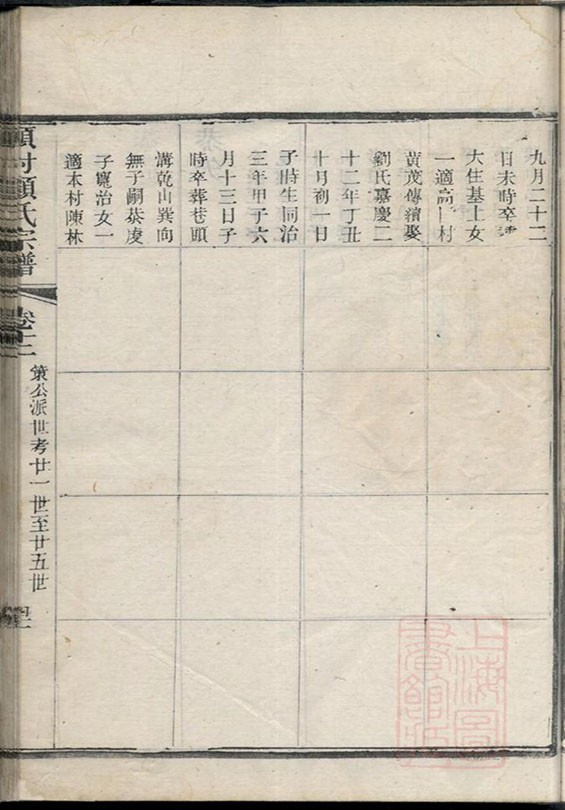 九月二十二
日未時卒葬
大住基上女
一適高村
黃茂傳續娶
劉氏嘉慶二
十二年丁丑
十月初一日
子時生同治
三年甲子六
月十三日子
時卒葬巷頭
溝乾山巽向
無子嗣葇凌
子寵治女一
適本村陳林
顧氏宗譜
卷十二
策公派世考廿一世至廿五世
上海圖書館藏